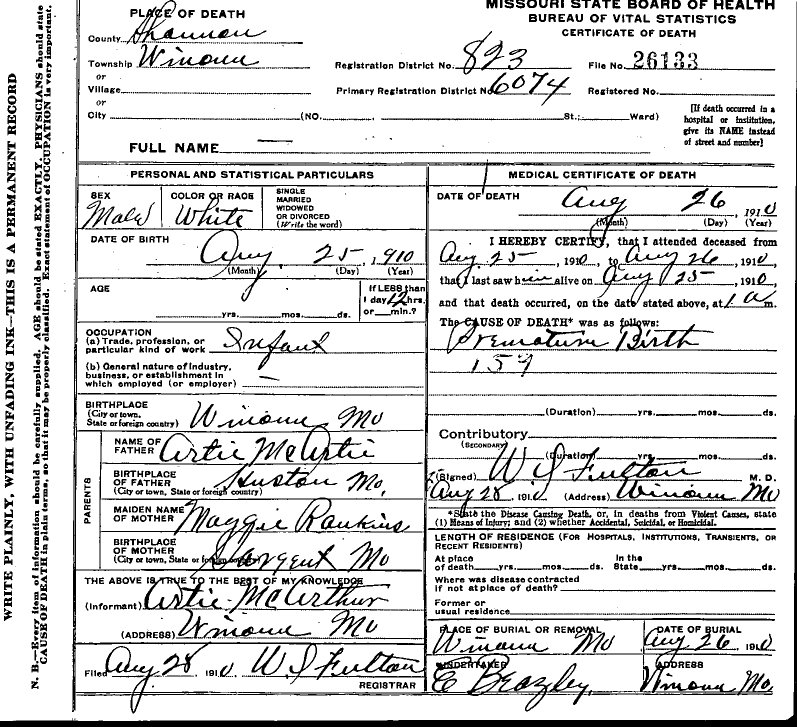 MISSOURI STATE BOARD OF HEALTH
BUREAU OF VITAL STATISTICS
CERTIFICATE OF DEATH
PLACE OF DEATH
County Shannon
Township Winona
or
Village
or
City (NO. St.; Ward)
Registration District No. 823 File No. 26133
Primary Registration District No. 6074 Registered No.
[If death occurred in a
hospital or institution,
give its NAME instead
of street and number]
FULL NAME
PERSONAL AND STATISTICAL PARTICULARS
SEX
Male
COLOR OR RACE
White
SINGLE
MARRIED
WIDOWED
OR DIVORCED
(Write the word)
DATE OF BIRTH
Aug 25, 1910
(Month) (Day) (Year)
AGE
yrs. mos. ds.
If LESS than
1 day 12 hrs.
or min.?
OCCUPATION
(a) Trade, profession, or
particular kind of work Infant
(b) General nature of industry,
business, or establishment in
which employed (or employer) —
BIRTHPLACE
(City or town,
State or foreign country) Winona Mo
PARENTS
NAME OF
FATHER Artie McArtie
BIRTHPLACE
OF FATHER
(City or town, State or foreign country) Huston Mo,
MAIDEN NAME
OF MOTHER Maggie Rankins
BIRTHPLACE
OF MOTHER
(City or town, State or foreign country) Sargent Mo
THE ABOVE IS TRUE TO THE BEST OF MY KNOWLEDGE
(Informant) Artie McArthur
(ADDRESS) Winona Mo
Filed Aug 28 1910 W S Fulton
REGISTRAR
MEDICAL CERTIFICATE OF DEATH
DATE OF DEATH
Aug 26, 1910
(Month) (Day) (Year)
I HEREBY CERTIFY, that I attended deceased from
Aug 25, 1910, to Aug 26, 1910,
that I last saw him alive on Aug 25, 1910,
and that death occurred, on the date stated above, at 1 a m.
The CAUSE OF DEATH* was as follows:
Premature Birth
159
(Duration) yrs. mos. ds.
Contributory
(SECONDARY)
(Duration) yrs. mos. ds.
(Signed) W S Fulton M. D.
Aug 28 1910 (Address) Winona Mo
*State the Disease Causing Death, or, in deaths from Violent Causes, state
(1) Means of Injury; and (2) whether Accidental, Suicidal, or Homicidal.
LENGTH OF RESIDENCE (FOR HOSPITALS, INSTITUTIONS, TRANSIENTS, OR
RECENT RESIDENTS)
At place
of death yrs. mos. ds.
In the
State yrs. mos. ds.
Where was disease contracted
if not at place of death?
Former or
usual residence
PLACE OF BURIAL OR REMOVAL
Winona Mo
DATE OF BURIAL
Aug 26 1910
UNDERTAKER
C Beazley,
ADDRESS
Winona Mo.
WRITE PLAINLY, WITH UNFADING INK—THIS IS A PERMANENT RECORD
N. B.—Every item of information should be carefully supplied. AGE should be stated EXACTLY. PHYSICIANS should state
CAUSE OF DEATH in plain terms, so that it may be properly classified. Exact statement of OCCUPATION is very important.